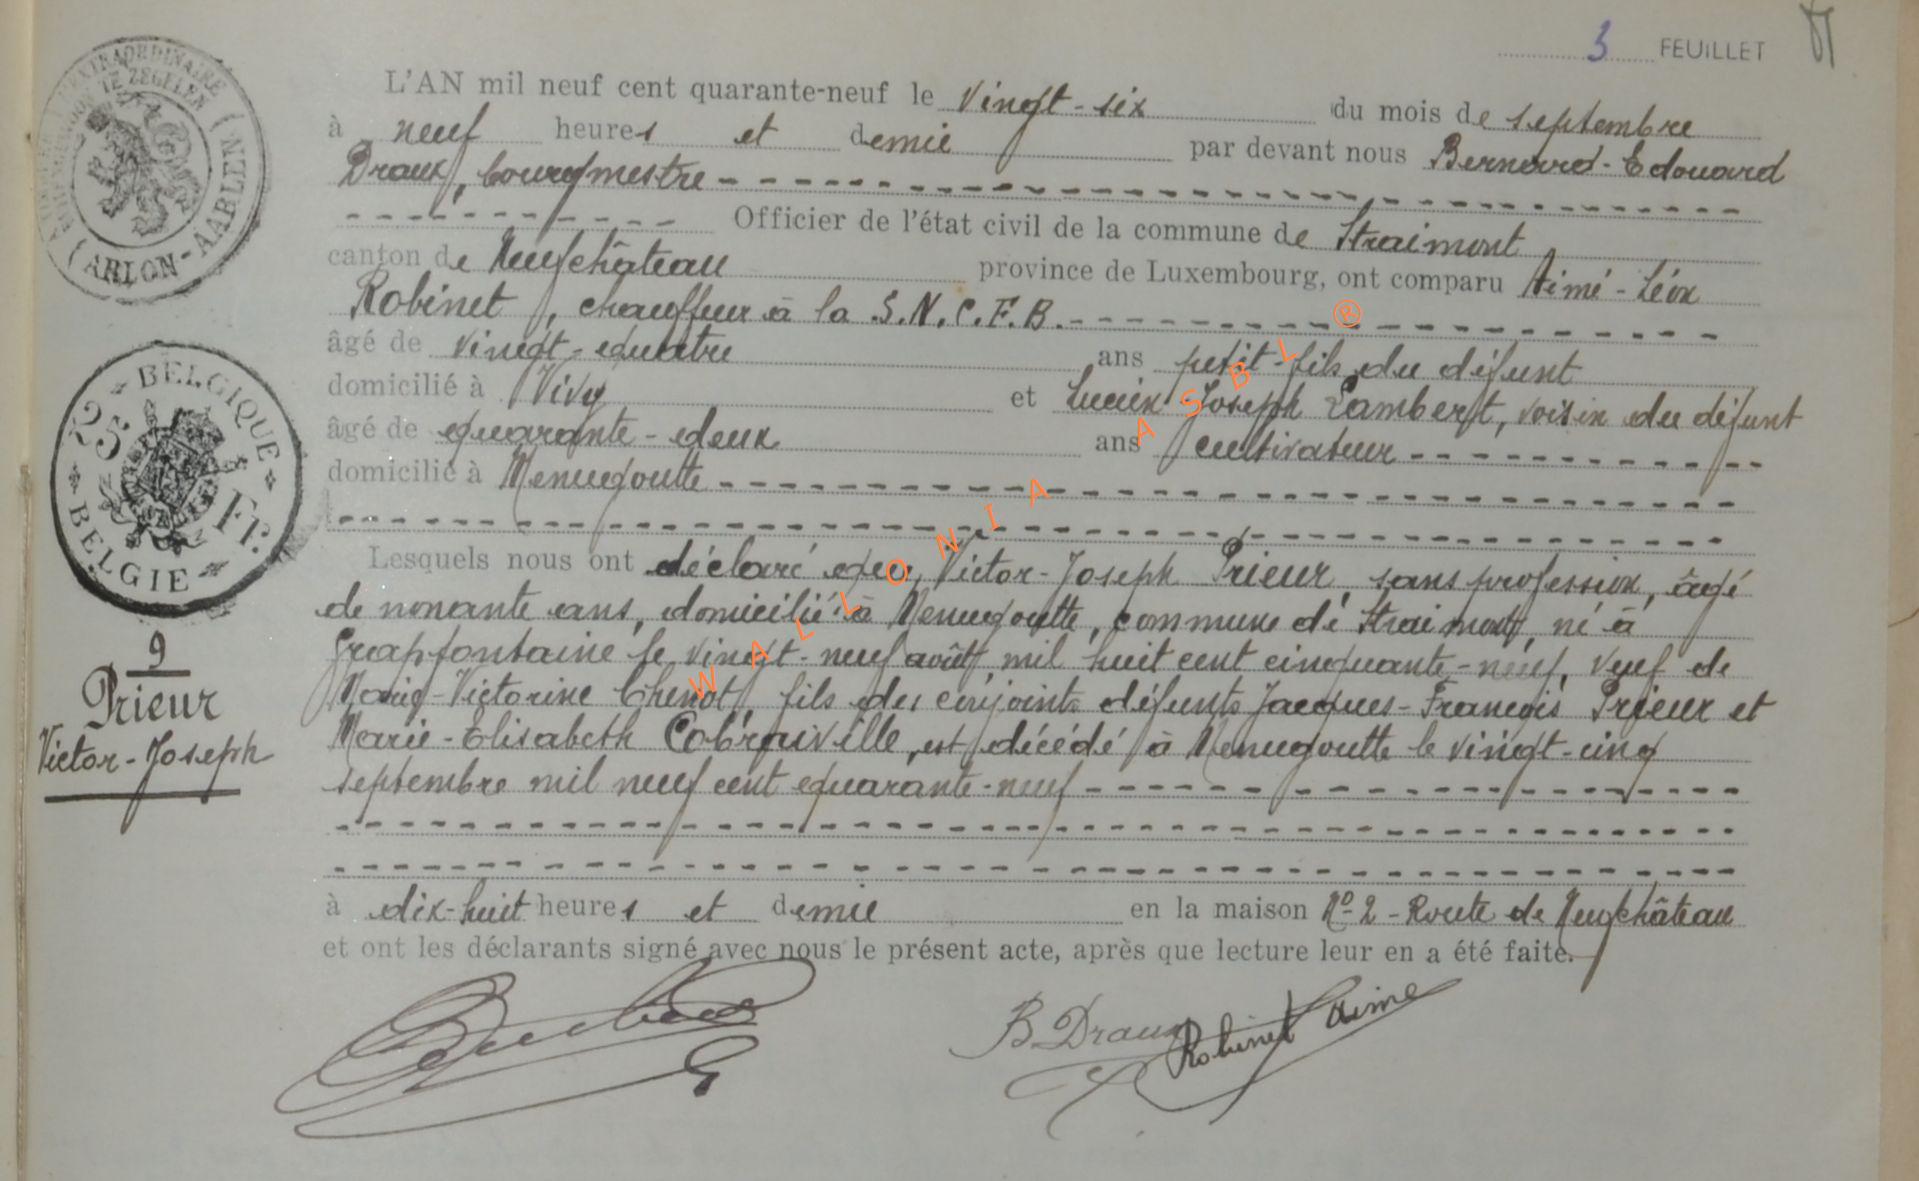 3 FEUILLET
L'AN mil neuf cent quarante-neuf le vingt-six du mois de septembre
à neuf heures et demie par devant nous Bernard-Edouard
Draux, bourgmestre
Officier de l'état civil de la commune de Straimont
canton de Neufchâteau province de Luxembourg, ont comparu Aimé-Léon
Robinet, chauffeur à la S.N.C.F.B.
âgé de vingt-quatre ans petit-fils du défunt
domicilié à Vivy et Lucien Joseph Lambert, voisin du défunt
âgé de quarante-deux ans cultivateur
domicilié à Menugoutte
Lesquels nous ont déclaré que, Victor-Joseph Prieur, sans profession, âgé
de nonante ans, domicilié à Menugoutte, commune de Straimont, né à
Grapfontaine le vingt-neuf août mil huit cent cinquante-neuf, veuf de
Marie-Victorine Chenot, fils des conjoints défunts Jacques-François Prieur et
Marie-Elisabeth Cobraiville, est décédé à Menugoutte le vingt-cinq
septembre mil neuf cent quarante-neuf
à dix-huit heures et demie en la maison No-2-Route de Neufchâteau
et ont les déclarants signé avec nous le présent acte, après que lecture leur en a été faite.
B. Draux
Robinet Aimé
ARLON-AARLEN
BELGIQUE
25 Fr.
BELGIE
9
Prieur
Victor-Joseph
WALLONIA ASBL ®